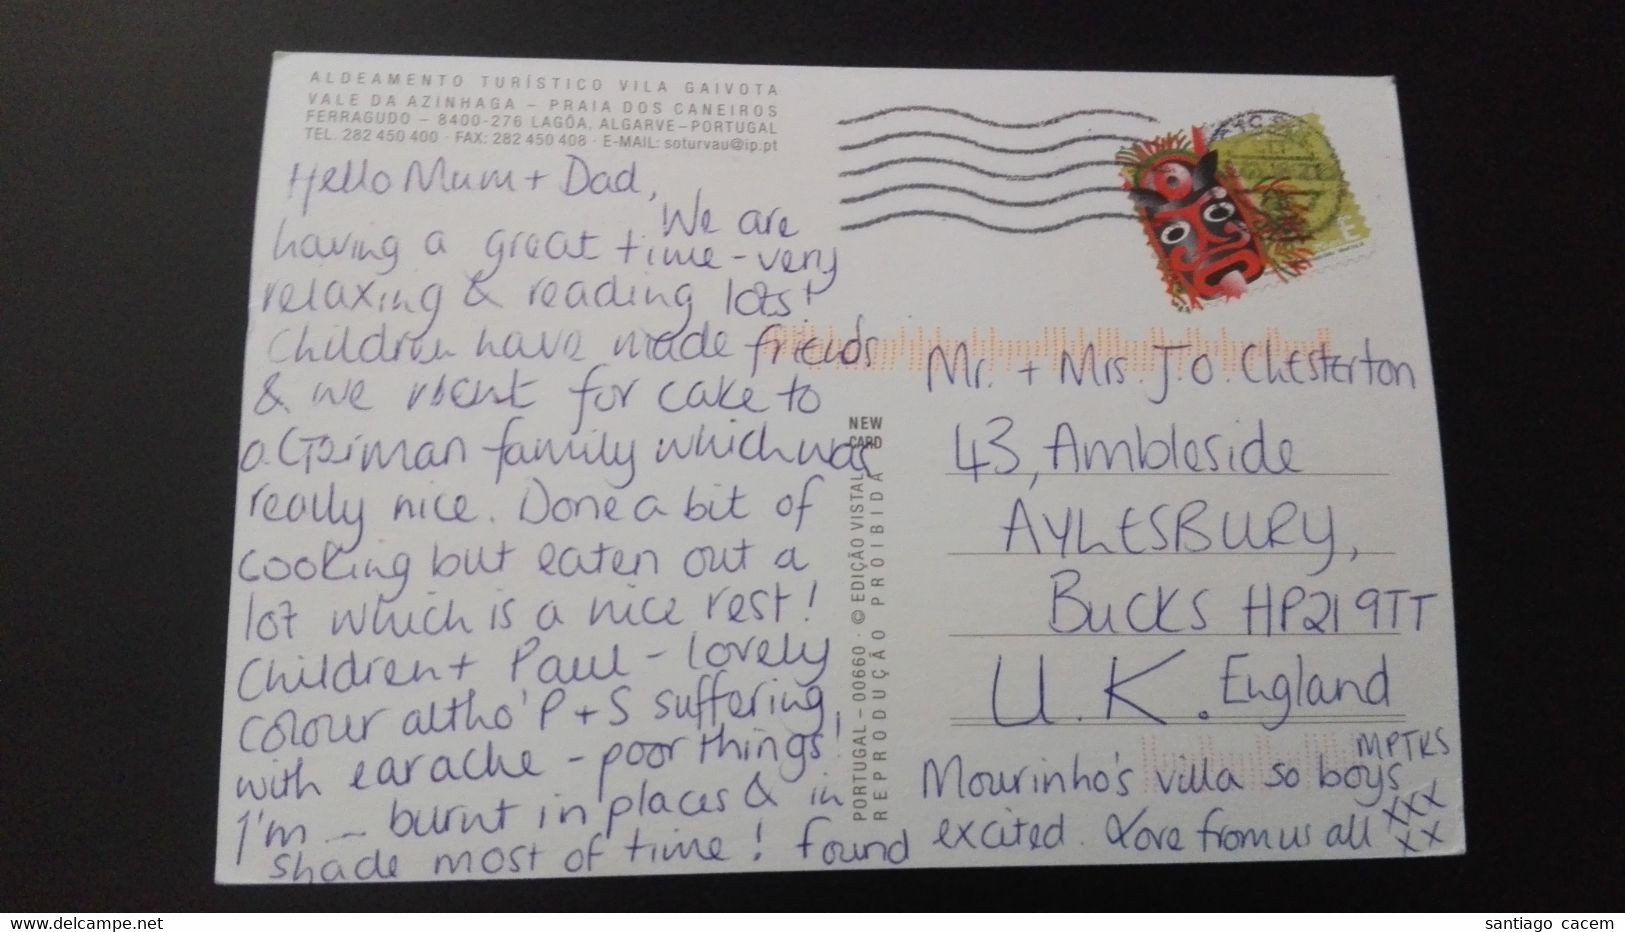 ALDEAMENTO TURÍSTICO VILA GAIVOTA
VALE DA AZINHAGA – PRAIA DOS CANEIROS
FERRAGUDO – 8400-276 LAGÔA, ALGARVE – PORTUGAL
TEL. 282 450 400 · FAX: 282 450 408 · E-MAIL: soturvau@ip.pt
Hello Mum + Dad,
We are
having a great time – very
relaxing & reading lots!
Children have made friends
& we went for cake to
a German family which was
really nice. Done a bit of
cooking but eaten out a
lot which is a nice rest!
Children + Paul – lovely
colour altho' P + S suffering
with earache – poor things!
I'm – burnt in places & in
shade most of time! Found
Mourinho's villa so boys
excited. Love from us all
MPTKS
xxx
xx
Mr. + Mrs. J. O. Chesterton
43, Ambleside
AYLESBURY,
BUCKS HP21 9TT
U.K. England
NEW
CARD
PORTUGAL – 00660 · © EDIÇÃO VISTAL
REPRODUÇÃO PROIBIDA
E
santiago cacem